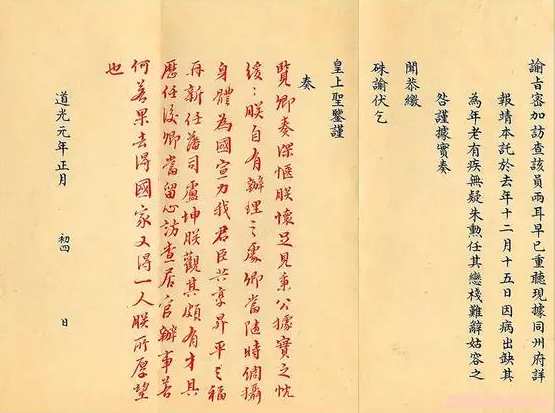 諭旨審加訪查該員兩耳早已重聽現據同州府詳
報請本託於去年十二月十五日因病出缺其
為年老有疾無疑朱勳任其戀棧難辭姑容之
咎謹據實奏
聞恭繳
硃諭伏乞
皇上聖鑒謹
奏
覽卿奏深愜朕懷足見秉公據實之忱
後朕自有辦理之處卿當隨時調攝
身體為國宣力我君臣共享昇平之福
再新任藩司盧坤朕觀其頗有才具
歷任後卿當留心訪查居官辦事若
何若果去得國家又得一人朕所厚望
也
道光元年正月 初四 日